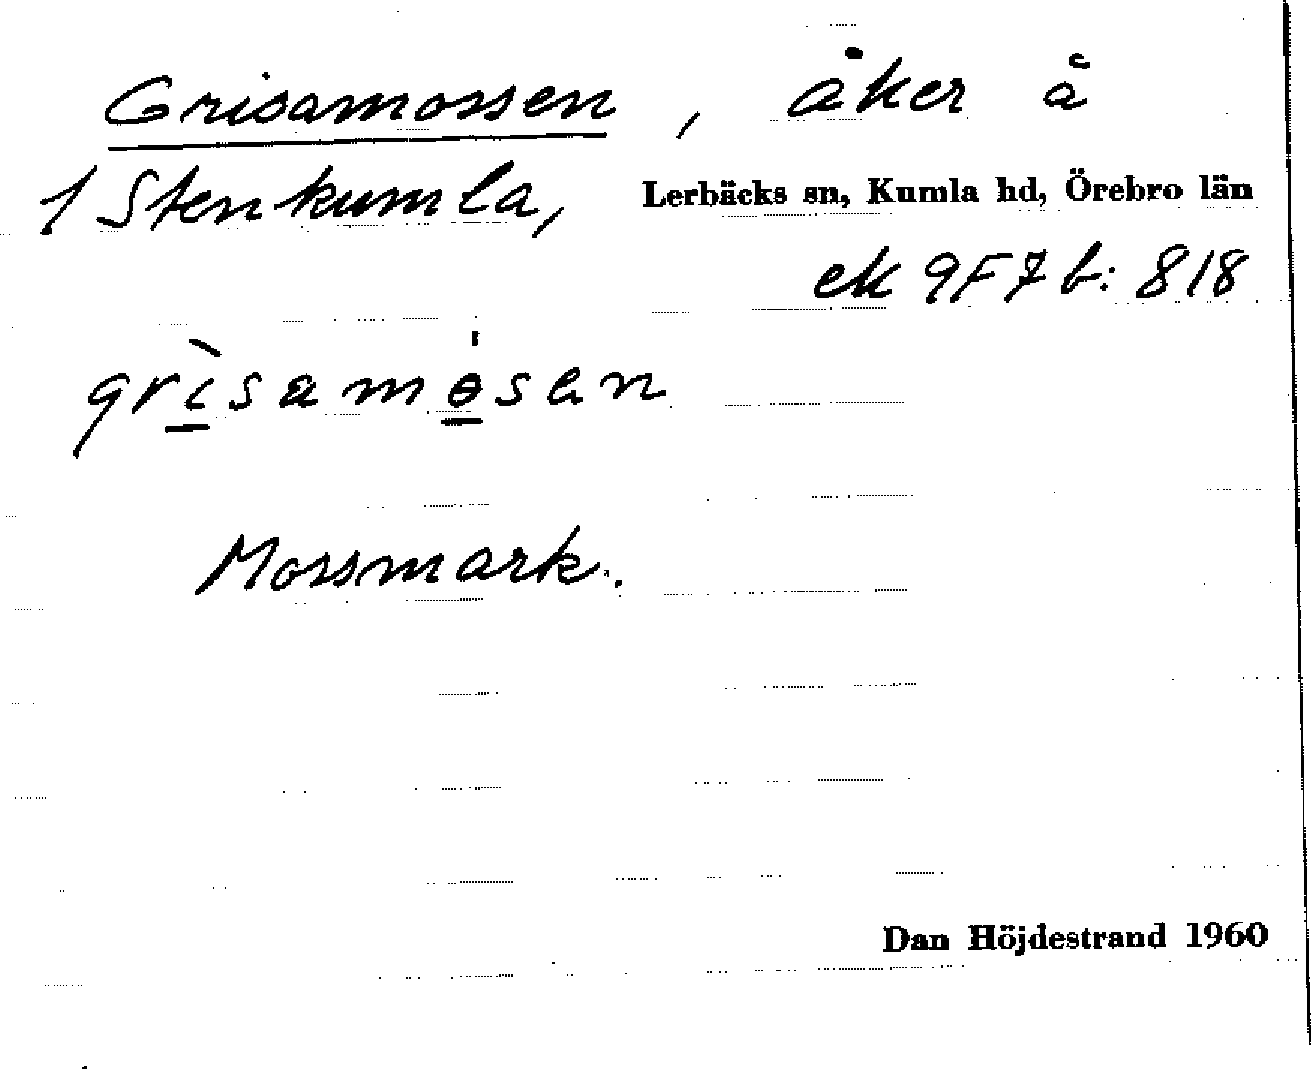 Grisamossen, åker å
1 Stenkumla, Lerbäcks sn, Kumla hd, Örebro län
ek 9F7b: 818
grìsamɵ́sen
Mossmark.
Dan Höjdestrand 1960